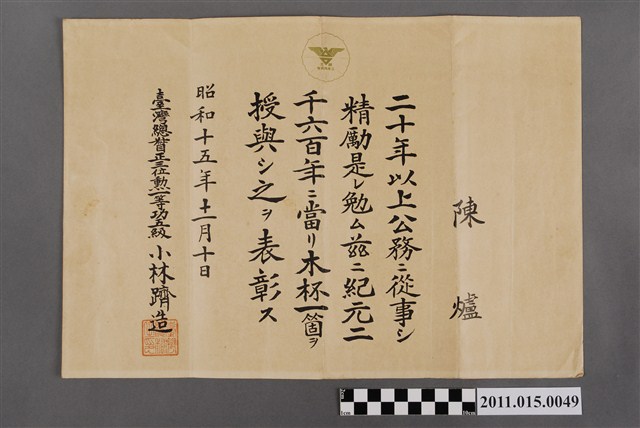 陳爐
二十年以上公務ニ從事シ
精勵是レ勉ム茲ニ紀元二
千六百年ニ當リ木杯一箇ヲ
授與シ之ヲ表彰ス
昭和十五年十一月十日
臺灣總督正三位勲一等功五級 小林躋造
2011.015.0049